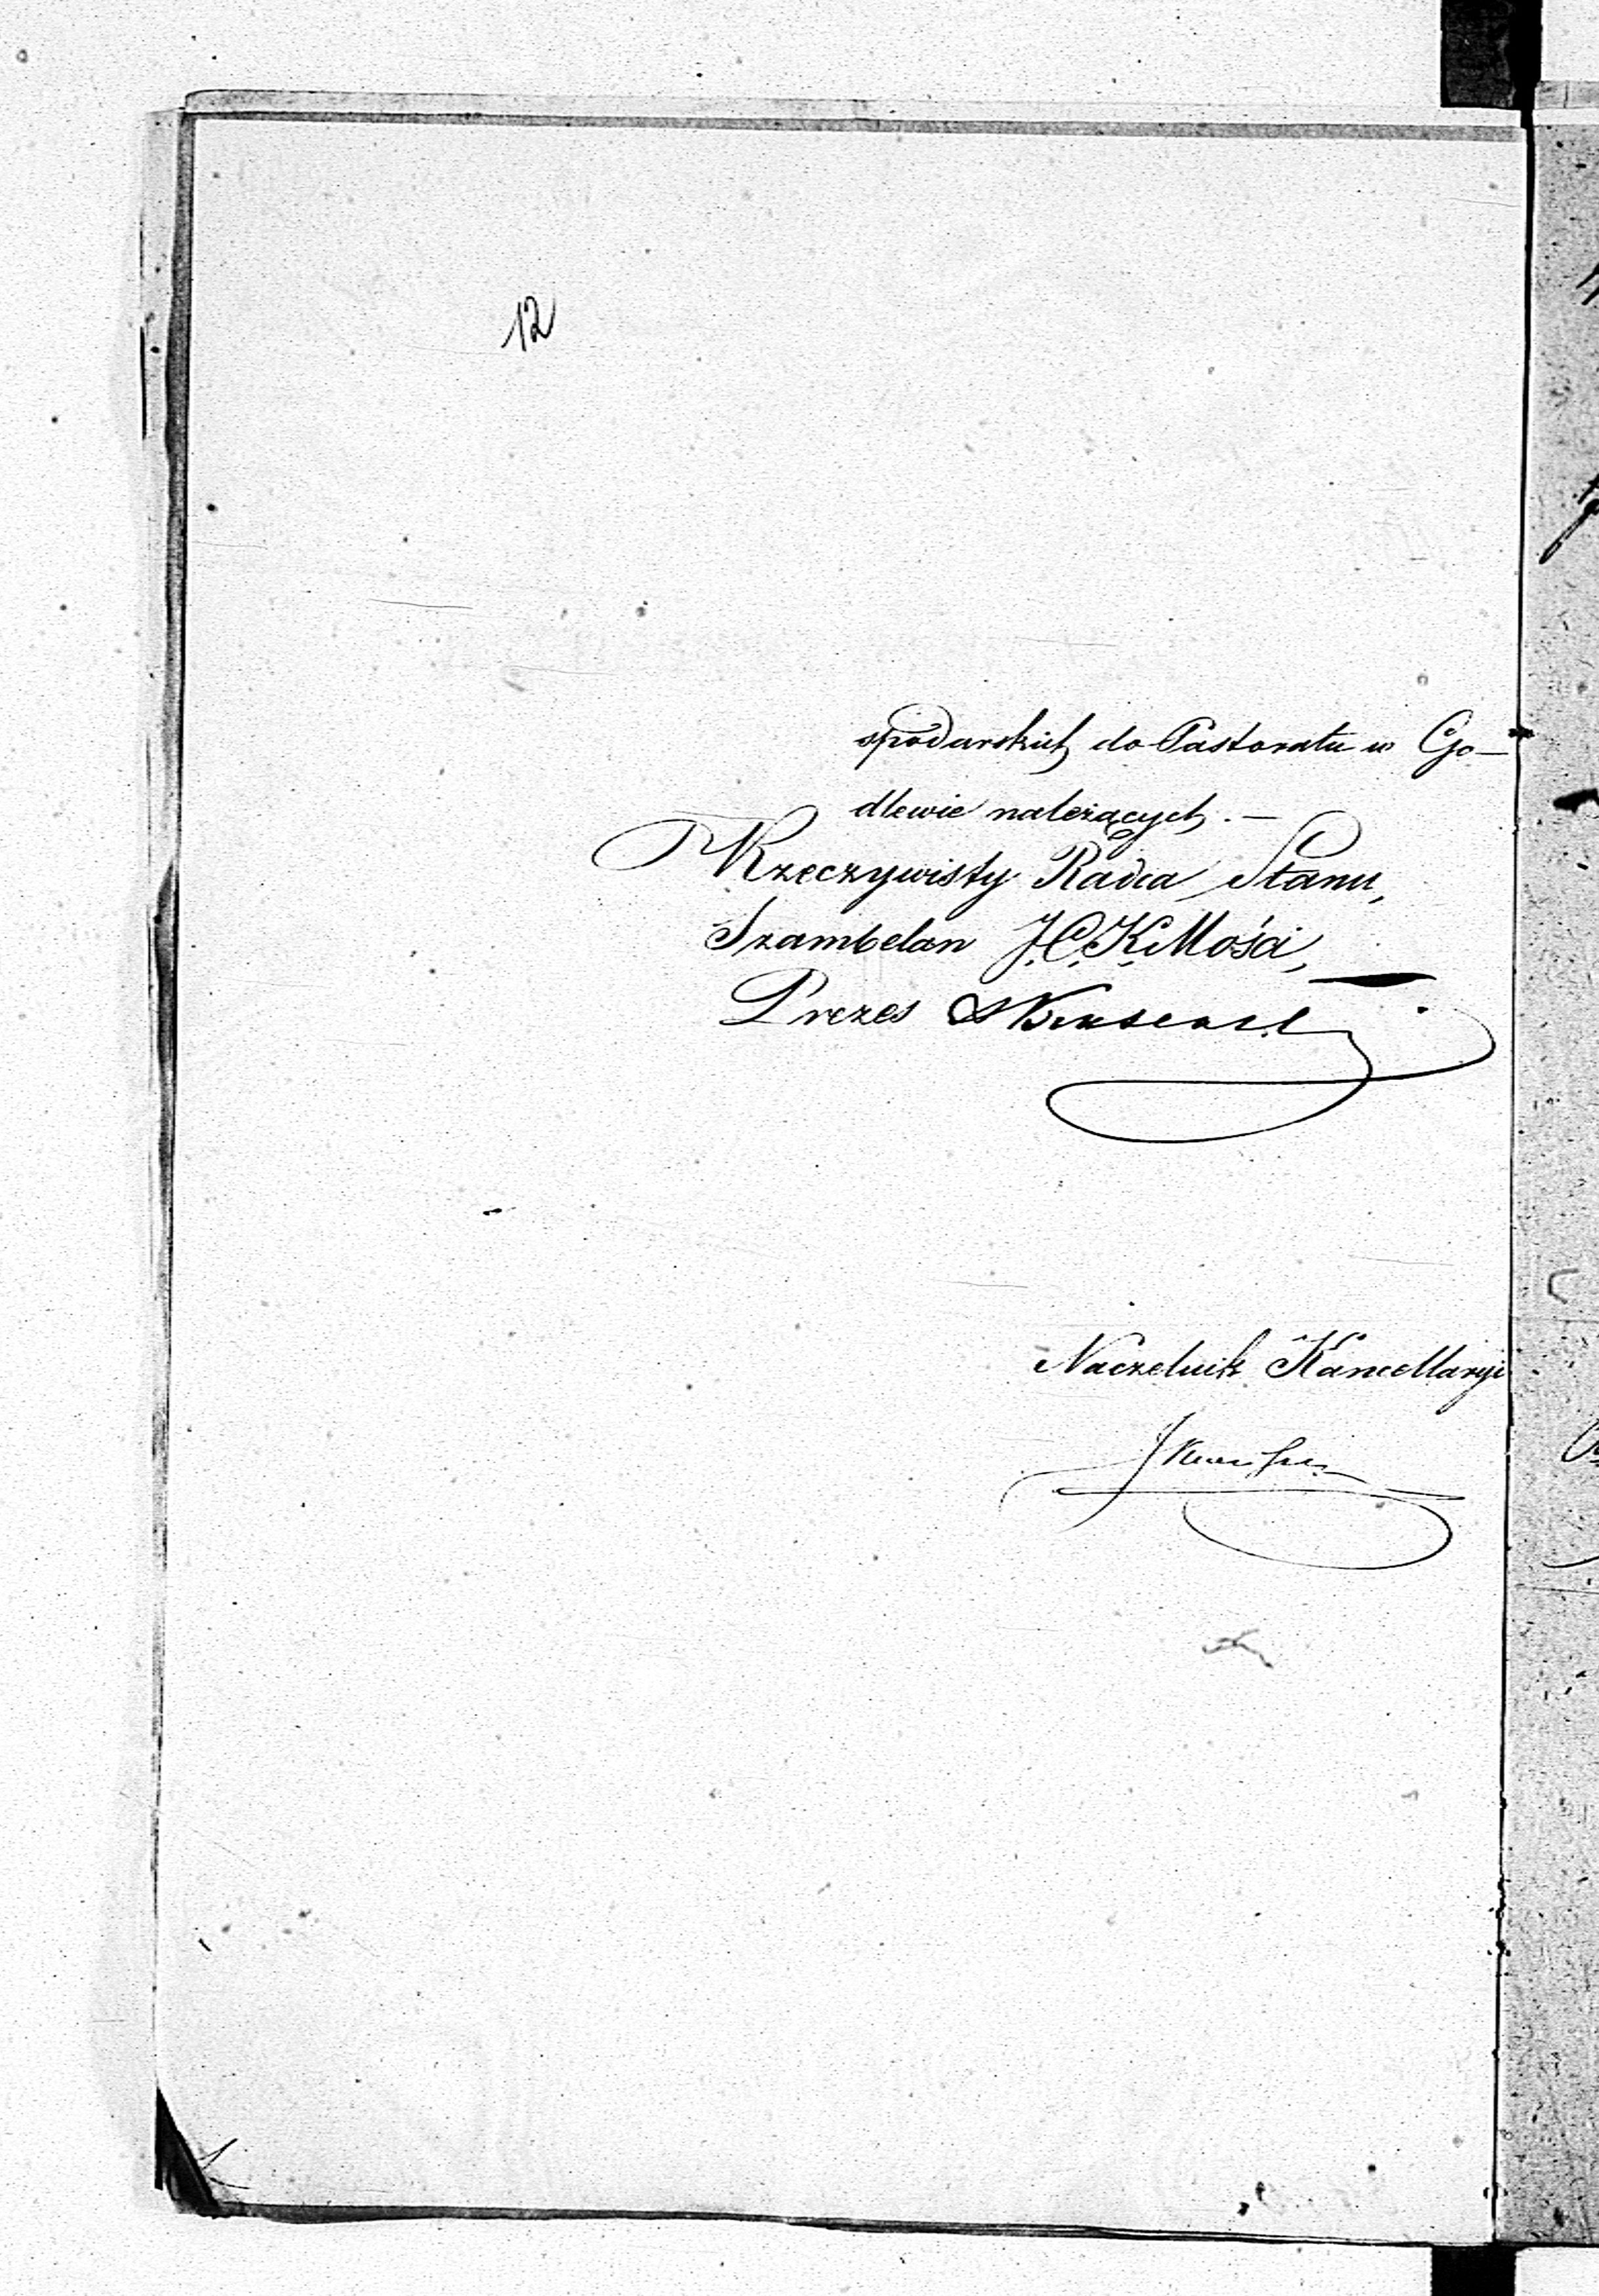 12
spodarskich do Pastoratu w Go-
dlewie należących. —
Rzeczywisty Radca Stanu,
Szambelan J. C. K. Mości,
Prezes
Naczelnik Kancellaryi